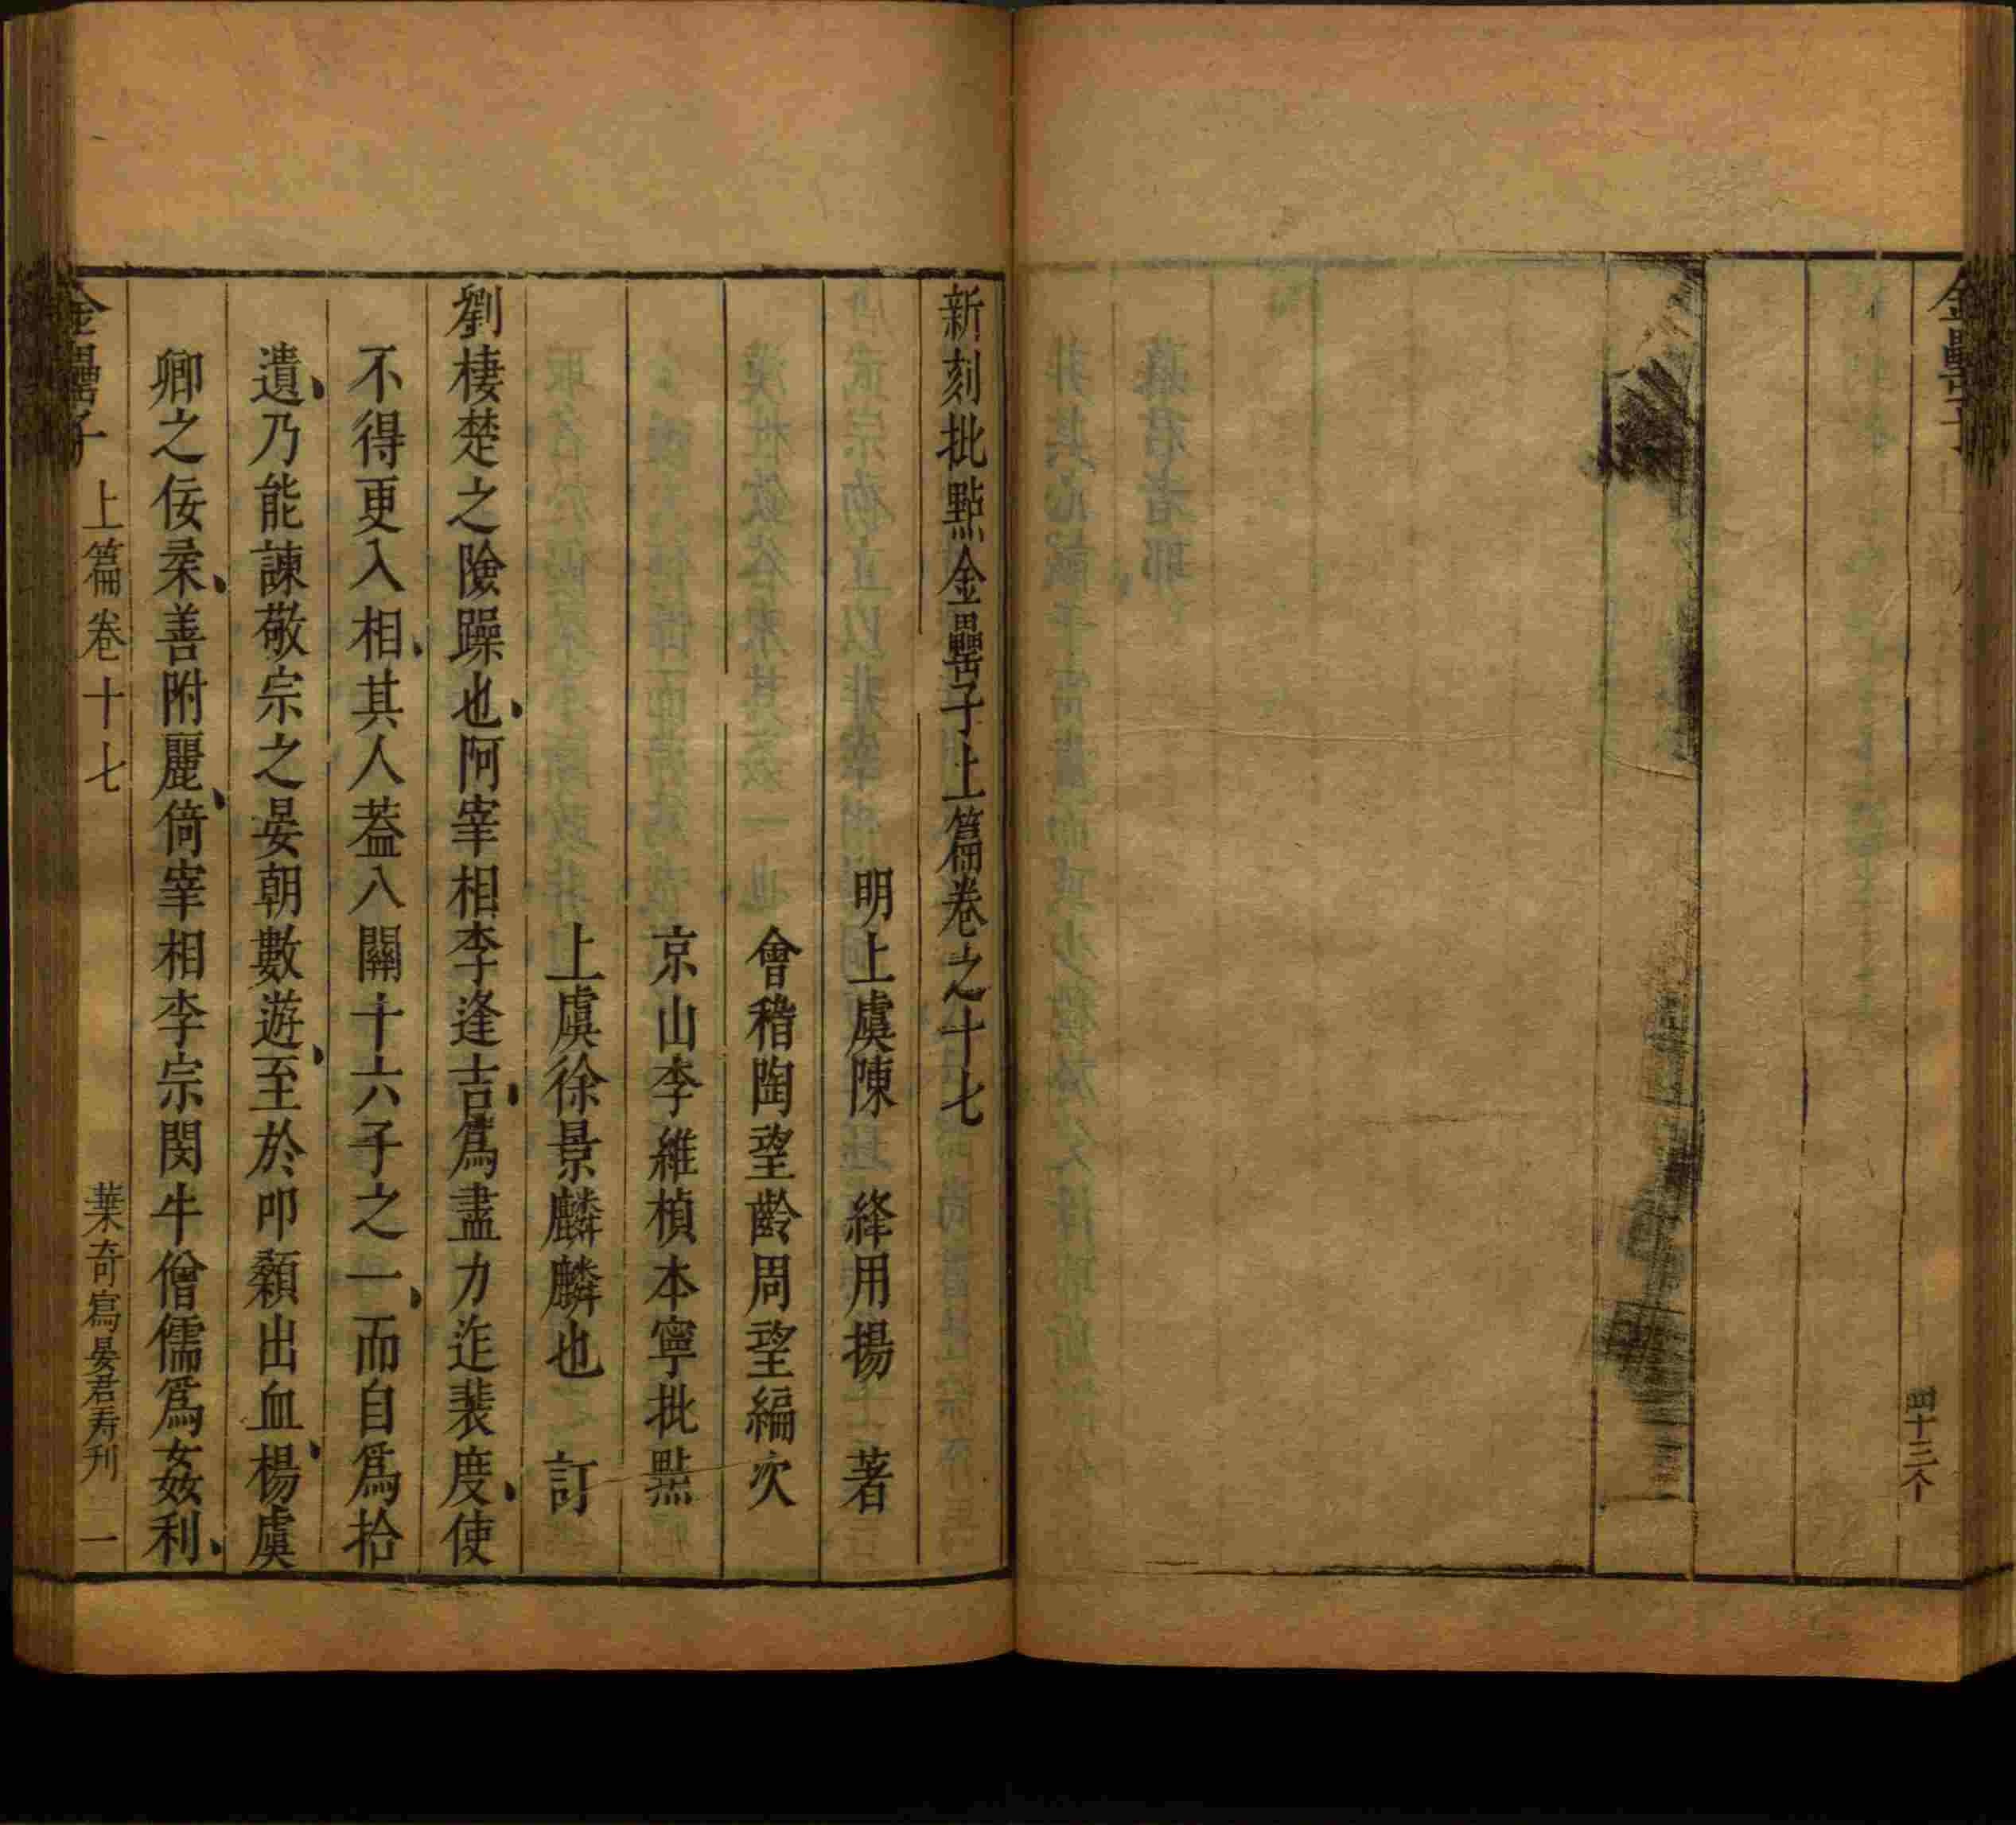 金罍子
四十三个
新刻批點金罍子上篇卷之十七
明上虞陳　絳用揚　著
會稽陶望齡周望編次
京山李維楨本寧批點
上虞徐景麟麟也　訂
劉棲楚之險躁也阿宰相李逢吉爲盡力迮裴度使
不得更入相其人葢八關十六子之一而自爲拾
遺乃能諫敬宗之晏朝數遊至於叩顙出血楊虞
卿之佞柔善附麗倚宰相李宗閔牛僧儒爲姦利
金罍子　上篇卷十七　葉奇寫晏君壽刋　一